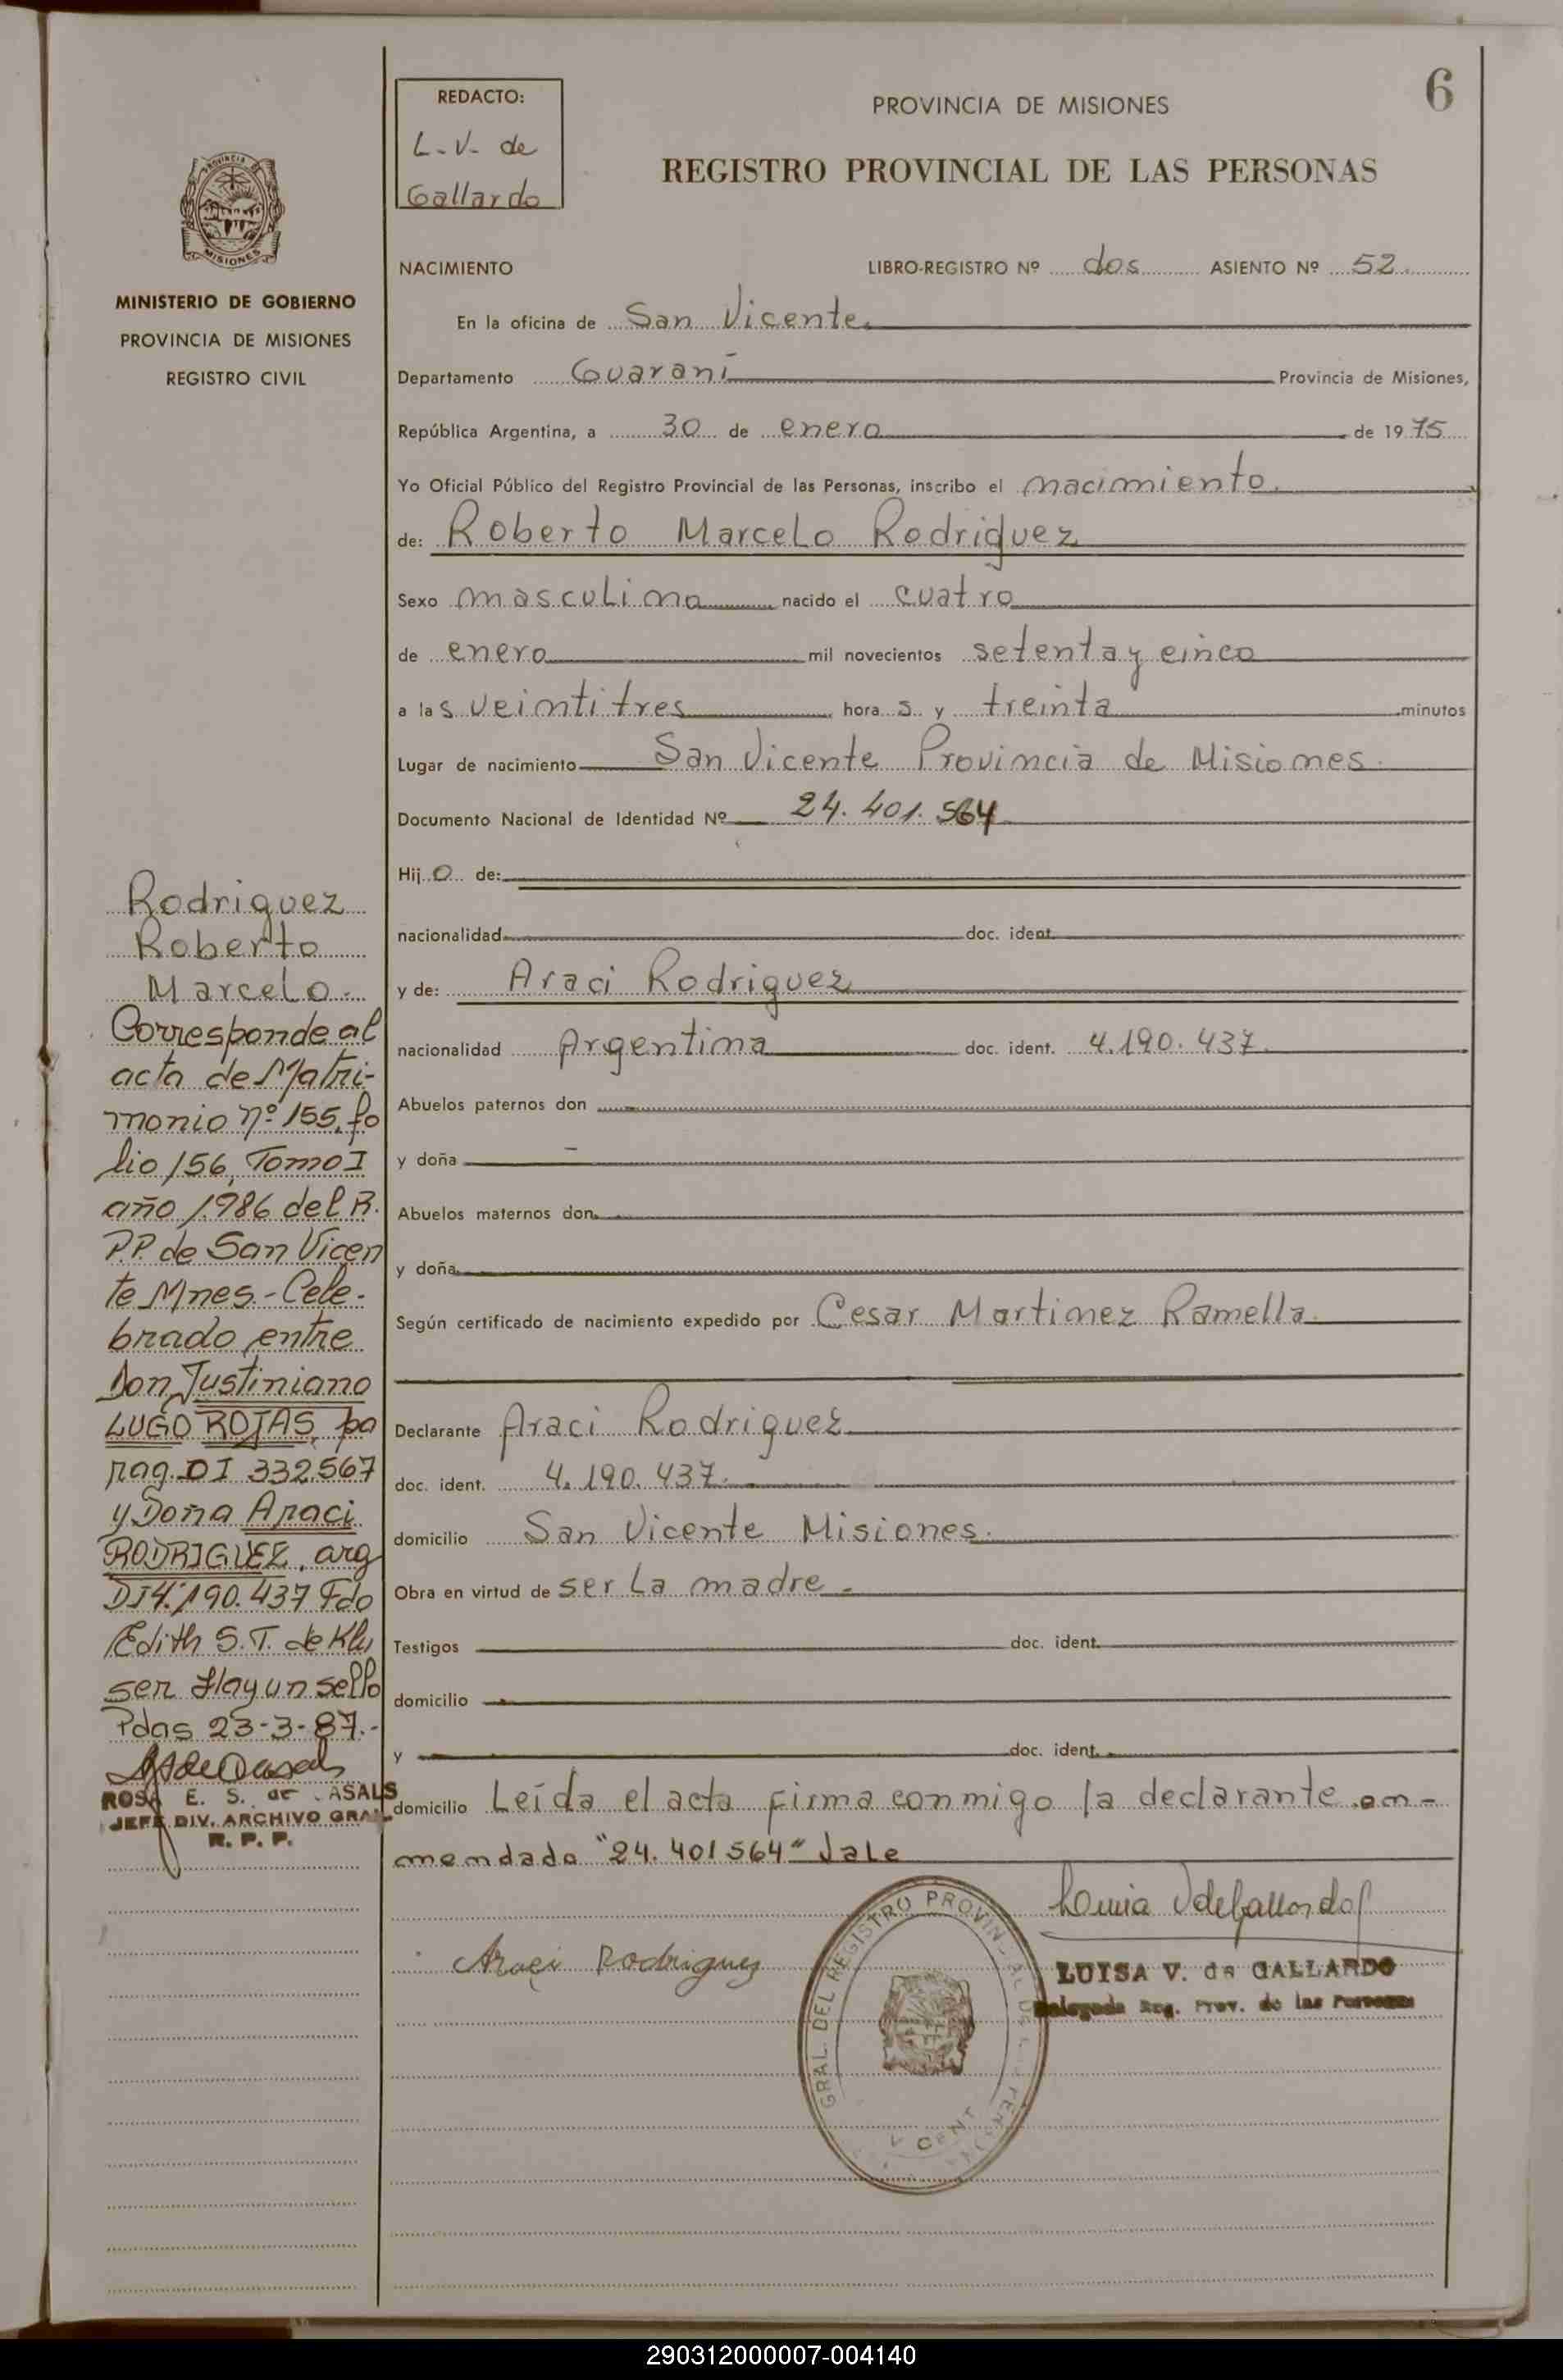 6
REDACTO:
L-V- de
Gallardo
PROVINCIA DE MISIONES
REGISTRO PROVINCIAL DE LAS PERSONAS
PROVINCIA DE
MISIONES
MINISTERIO DE GOBIERNO
PROVINCIA DE MISIONES
REGISTRO CIVIL
NACIMIENTO LIBRO-REGISTRO Nº dos ASIENTO Nº 52.
En la oficina de San Vicente
Departamento Guaraní Provincia de Misiones,
República Argentina, a 30 de enero de 1975
Yo Oficial Público del Registro Provincial de las Personas, inscribo el nacimiento
de: Roberto Marcelo Rodriguez
Sexo masculino nacido el cuatro
de enero mil novecientos setenta y cinco
a las veintitres horas y treinta minutos
Lugar de nacimiento San Vicente Provincia de Misiones.
Documento Nacional de Identidad Nº 24.401.564
Hijo de:
nacionalidad doc. ident.
y de: Araci Rodriguez
nacionalidad Argentina doc. ident. 4.190.437.
Abuelos paternos don
y doña
Abuelos maternos don
y doña
Según certificado de nacimiento expedido por Cesar Martinez Ramella.
Declarante Araci Rodriguez
doc. ident. 4.190.437.
domicilio San Vicente Misiones.
Obra en virtud de ser la madre-
Testigos doc. ident.
domicilio
y doc. ident.
domicilio Leída el acta firma conmigo la declarante en-
mendado "24.401564" Vale
Araci Rodriguez
LUISA V. de GALLARDO
Delegada Reg. Prov. de las Personas
GRAL. DEL REGISTRO PROVINCIAL DE
Rodriguez
Roberto
Marcelo.-
Corresponde al
acta de Matri-
monio nº 155, fo
lio 156, Tomo I
año 1986 del R.
P.P. de San Vicen
te Mnes.- Cele-
brado entre
Don Justiniano
LUGO ROJAS, pa
rag. DI 332.567
y Doña Araci
RODRIGUEZ, arg
DI 4.190.437 Fdo
Edith S.T. de Klu
ser Hay un sello
Pdas 23-3-87.-
ROSA E. S. de CASALS
JEFE DIV. ARCHIVO GRAL.
R. P. P.
290312000007-004140